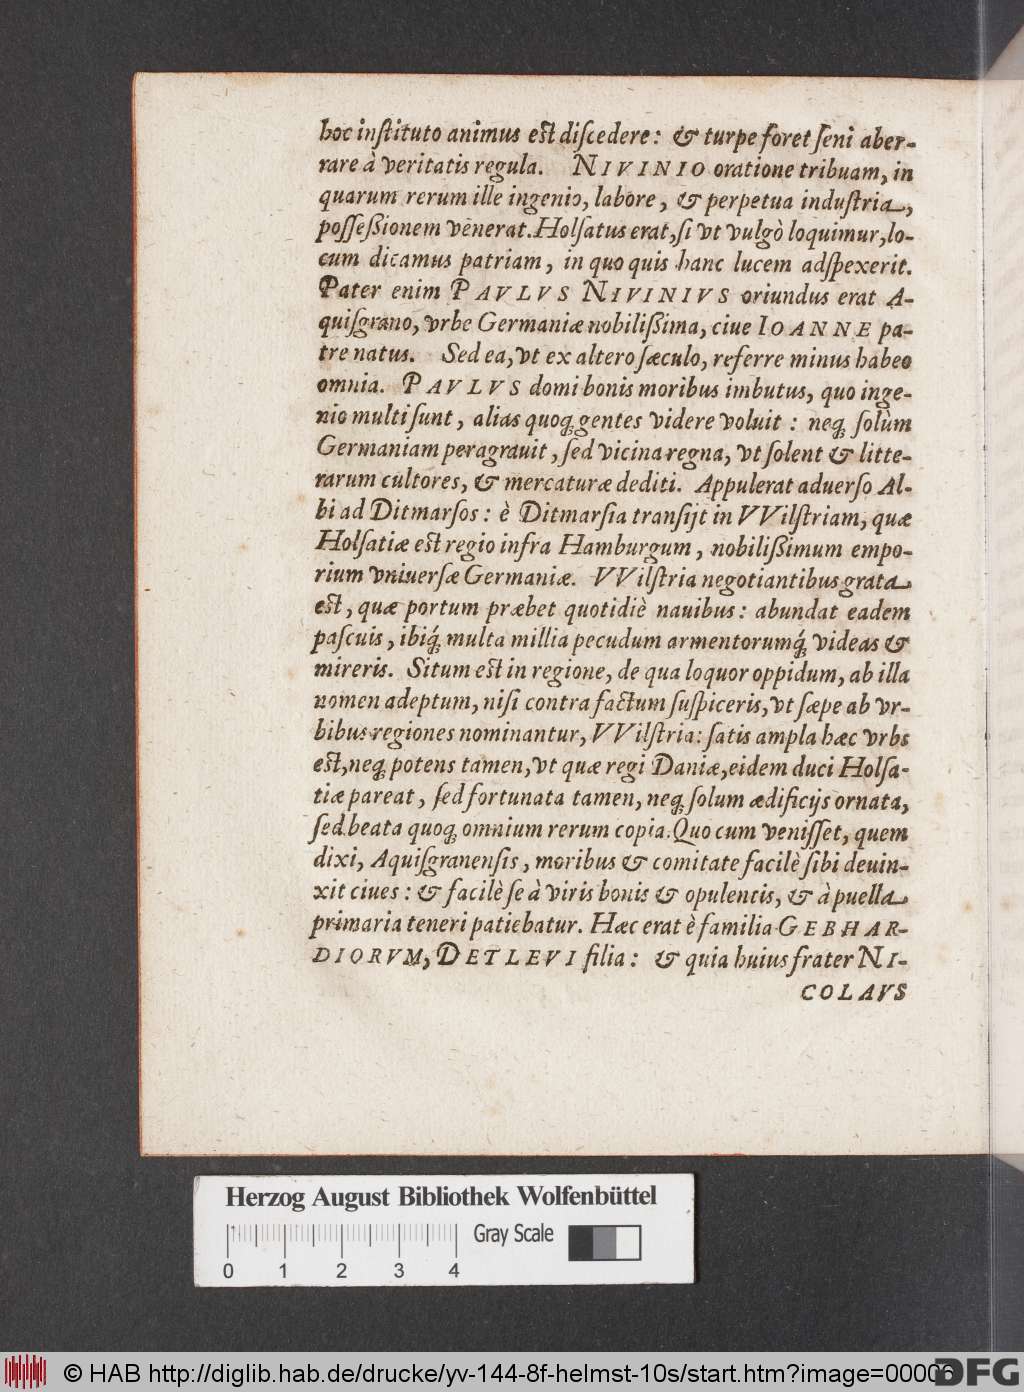 hoc inſtituto animus eſt diſcedere: & turpe foret ſeni aber-
rare à veritatis regula. NIVINIO oratione tribuam, in
quarum rerum ille ingenio, labore, & perpetua induſtria,
poſſeßionem venerat. Holſatus erat, ſi vt vulgò loquimur, lo-
cum dicamus patriam, in quo quis hanc lucem adſpexerit.
Pater enim PAVLVS NIVINIVS oriundus erat A-
quiſgrano, vrbe Germaniæ nobilißima, ciue IOANNE pa-
tre natus. Sed ea, vt ex altero ſæculo, referre minus habeo
omnia. PAVLVS domi bonis moribus imbutus, quo inge-
nio multi ſunt, alias quoq́ gentes videre voluit: neq́ ſolùm
Germaniam peragrauit, ſed vicina regna, vt ſolent & litte-
rarum cultores, & mercaturæ dediti. Appulerat aduerſo Al-
bi ad Ditmarſos: è Ditmarſia tranſijt in VVilſtriam, quæ
Holſatiæ eſt regio infra Hamburgum, nobilißimum empo-
rium vniuerſæ Germaniæ. VVilſtria negotiantibus grata
eſt, quæ portum præbet quotidiè nauibus: abundat eadem
paſcuis, ibiq́ multa millia pecudum armentorumq́ videas &
mireris. Situm eſt in regione, de qua loquor oppidum, ab illa
nomen adeptum, niſi contra factum ſuſpiceris, vt ſæpe ab vr-
bibus regiones nominantur, VVilſtria: ſatis ampla hæc vrbs
eſt, neq́ potens tamen, vt quæ regi Daniæ, eidem duci Holſa-
tiæ pareat, ſed fortunata tamen, neq́ ſolum ædificijs ornata,
ſed beata quoq́ omnium rerum copia. Quo cum veniſſet, quem
dixi, Aquiſgranenſis, moribus & comitate facilè ſibi deuin-
xit ciues: & facilè ſe à viris bonis & opulentis, & à puella
primaria teneri patiebatur. Hæc erat è familia GEBHAR-
DIORVM, DETLEVI filia: & quia huius frater NI-
COLAVS
Herzog August Bibliothek Wolfenbüttel
Gray Scale
0 1 2 3 4
© HAB http://diglib.hab.de/drucke/yv-144-8f-helmst-10s/start.htm?image=00006
DFG